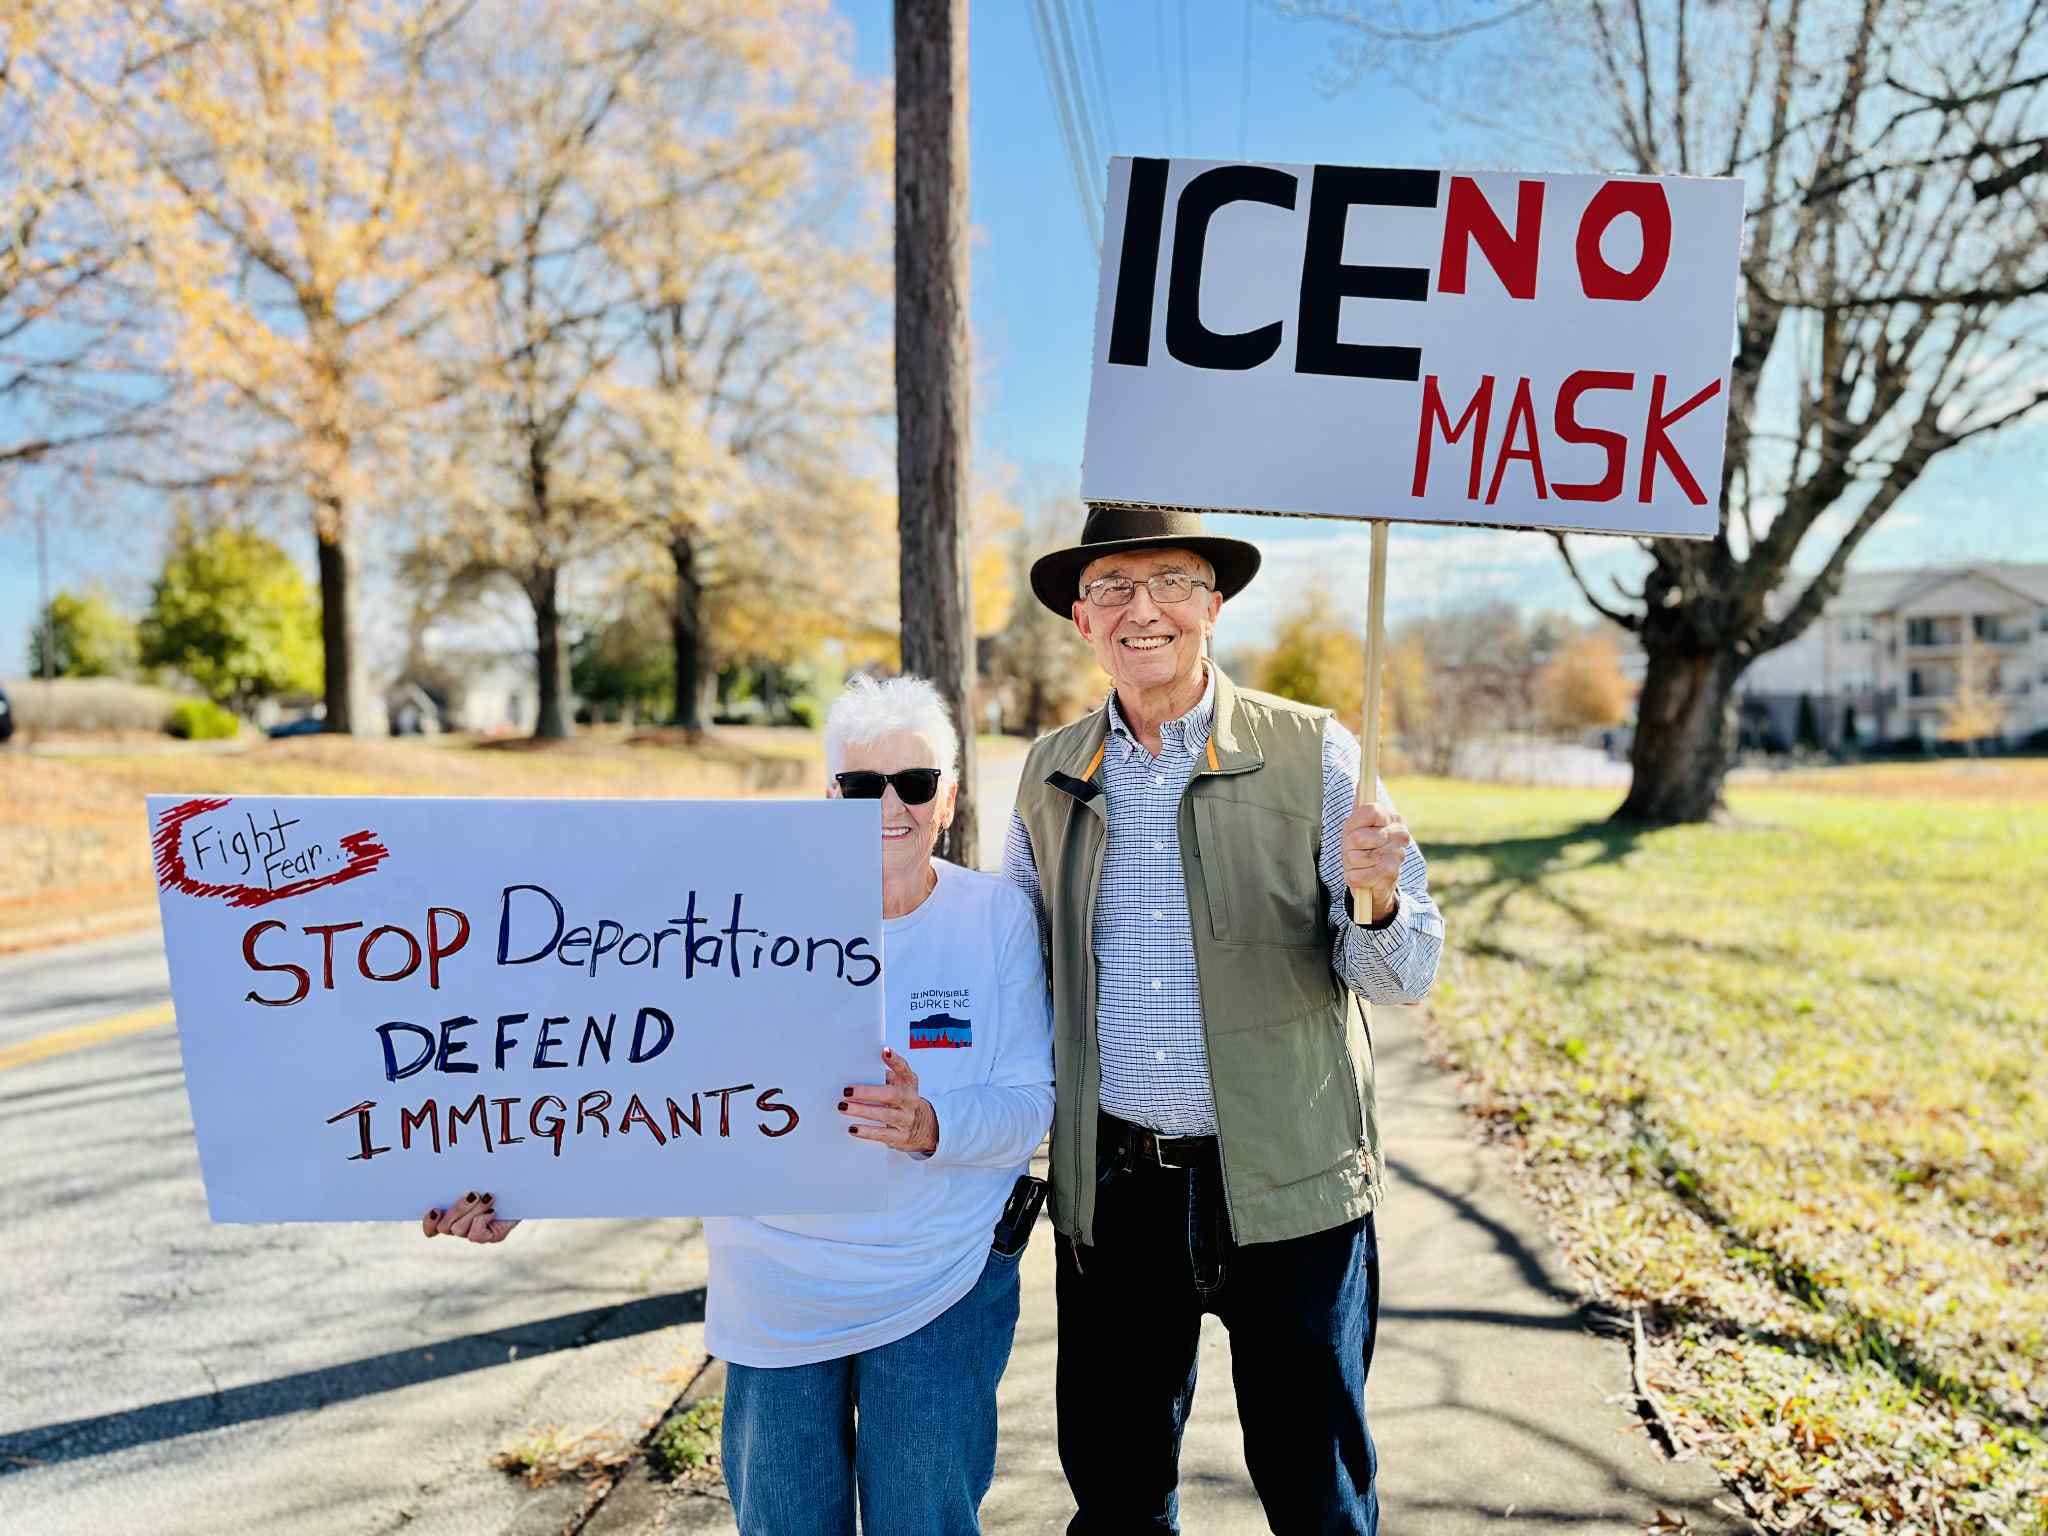 ICE NO
MASK
Fight
Fear...
STOP Deportations
DEFEND
IMMIGRANTS
INDIVISIBLE
BURKE NC